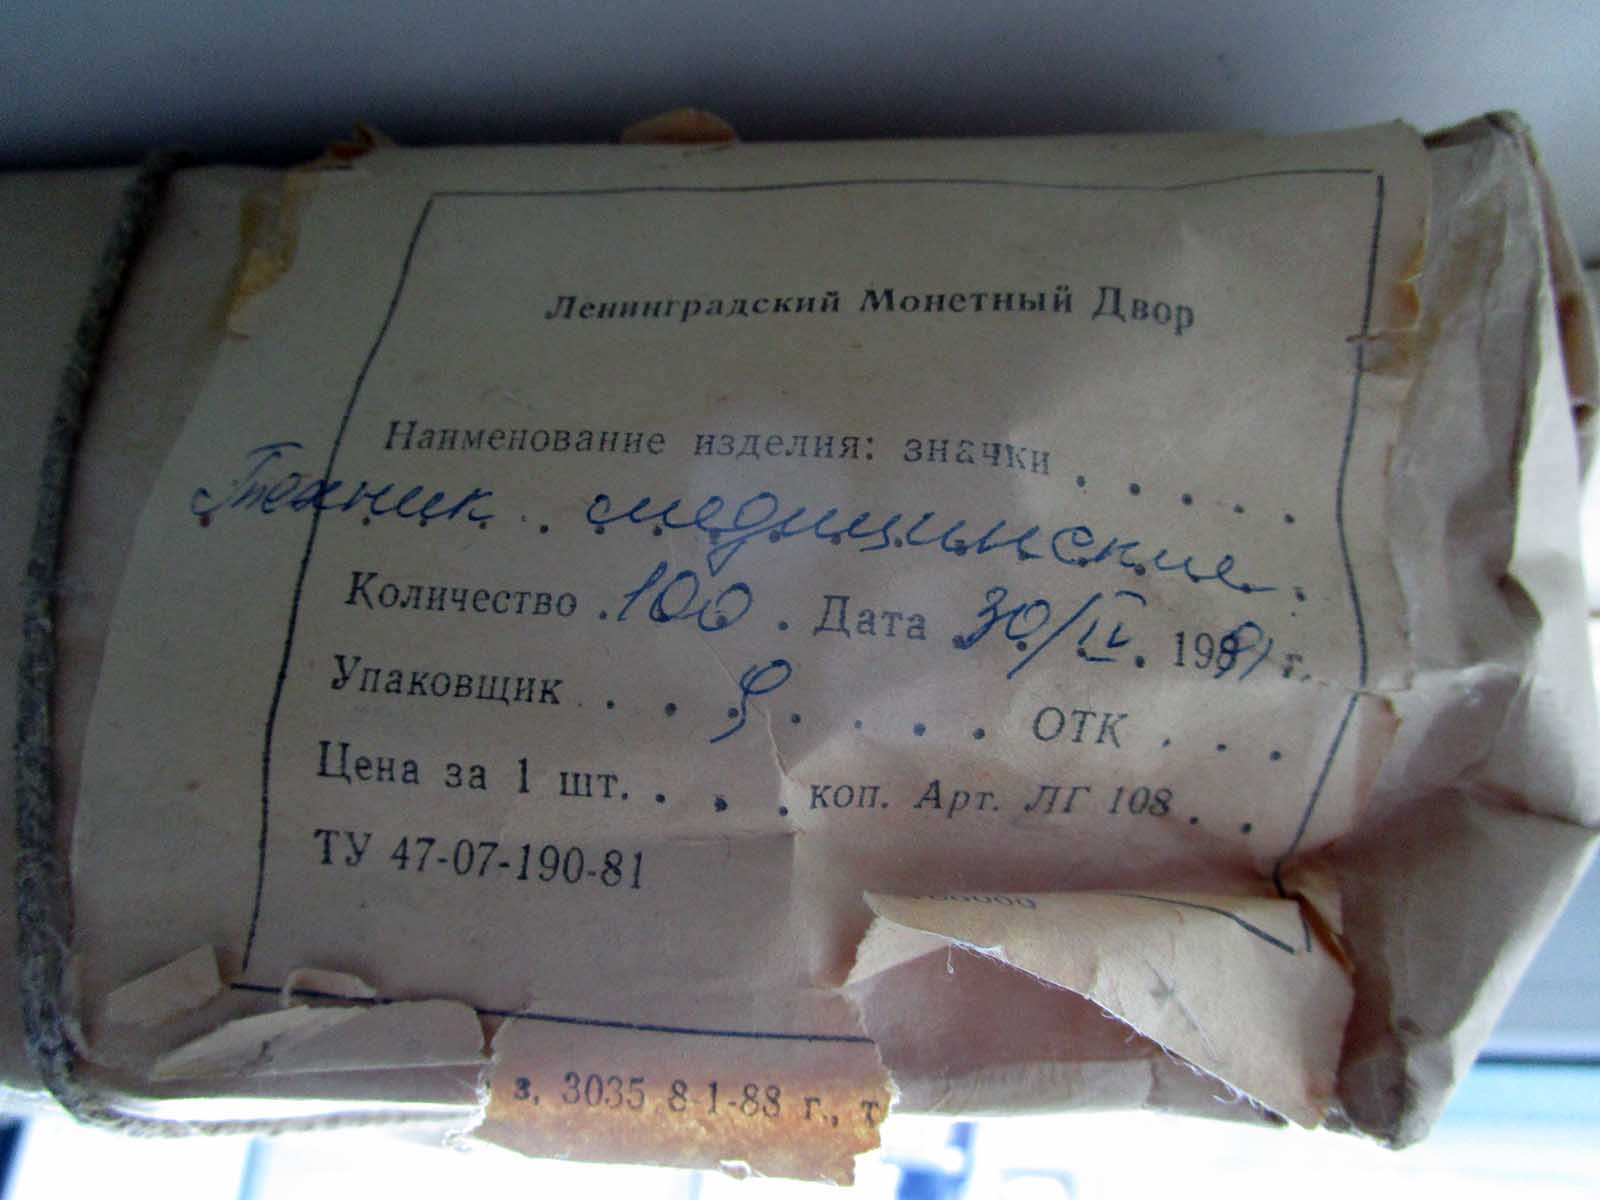 Ленинградский Монетный Двор
Наименование изделия: значки . . . . .
Техник . медицинские .
Количество . 100 . Дата 30/IV. 1991 г.
Упаковщик . . . . . . . . ОТК . . .
Цена за 1 шт. . . . коп. Арт. ЛГ 108 . .
ТУ 47-07-190-81
з. 3035 8-1-88 г., т